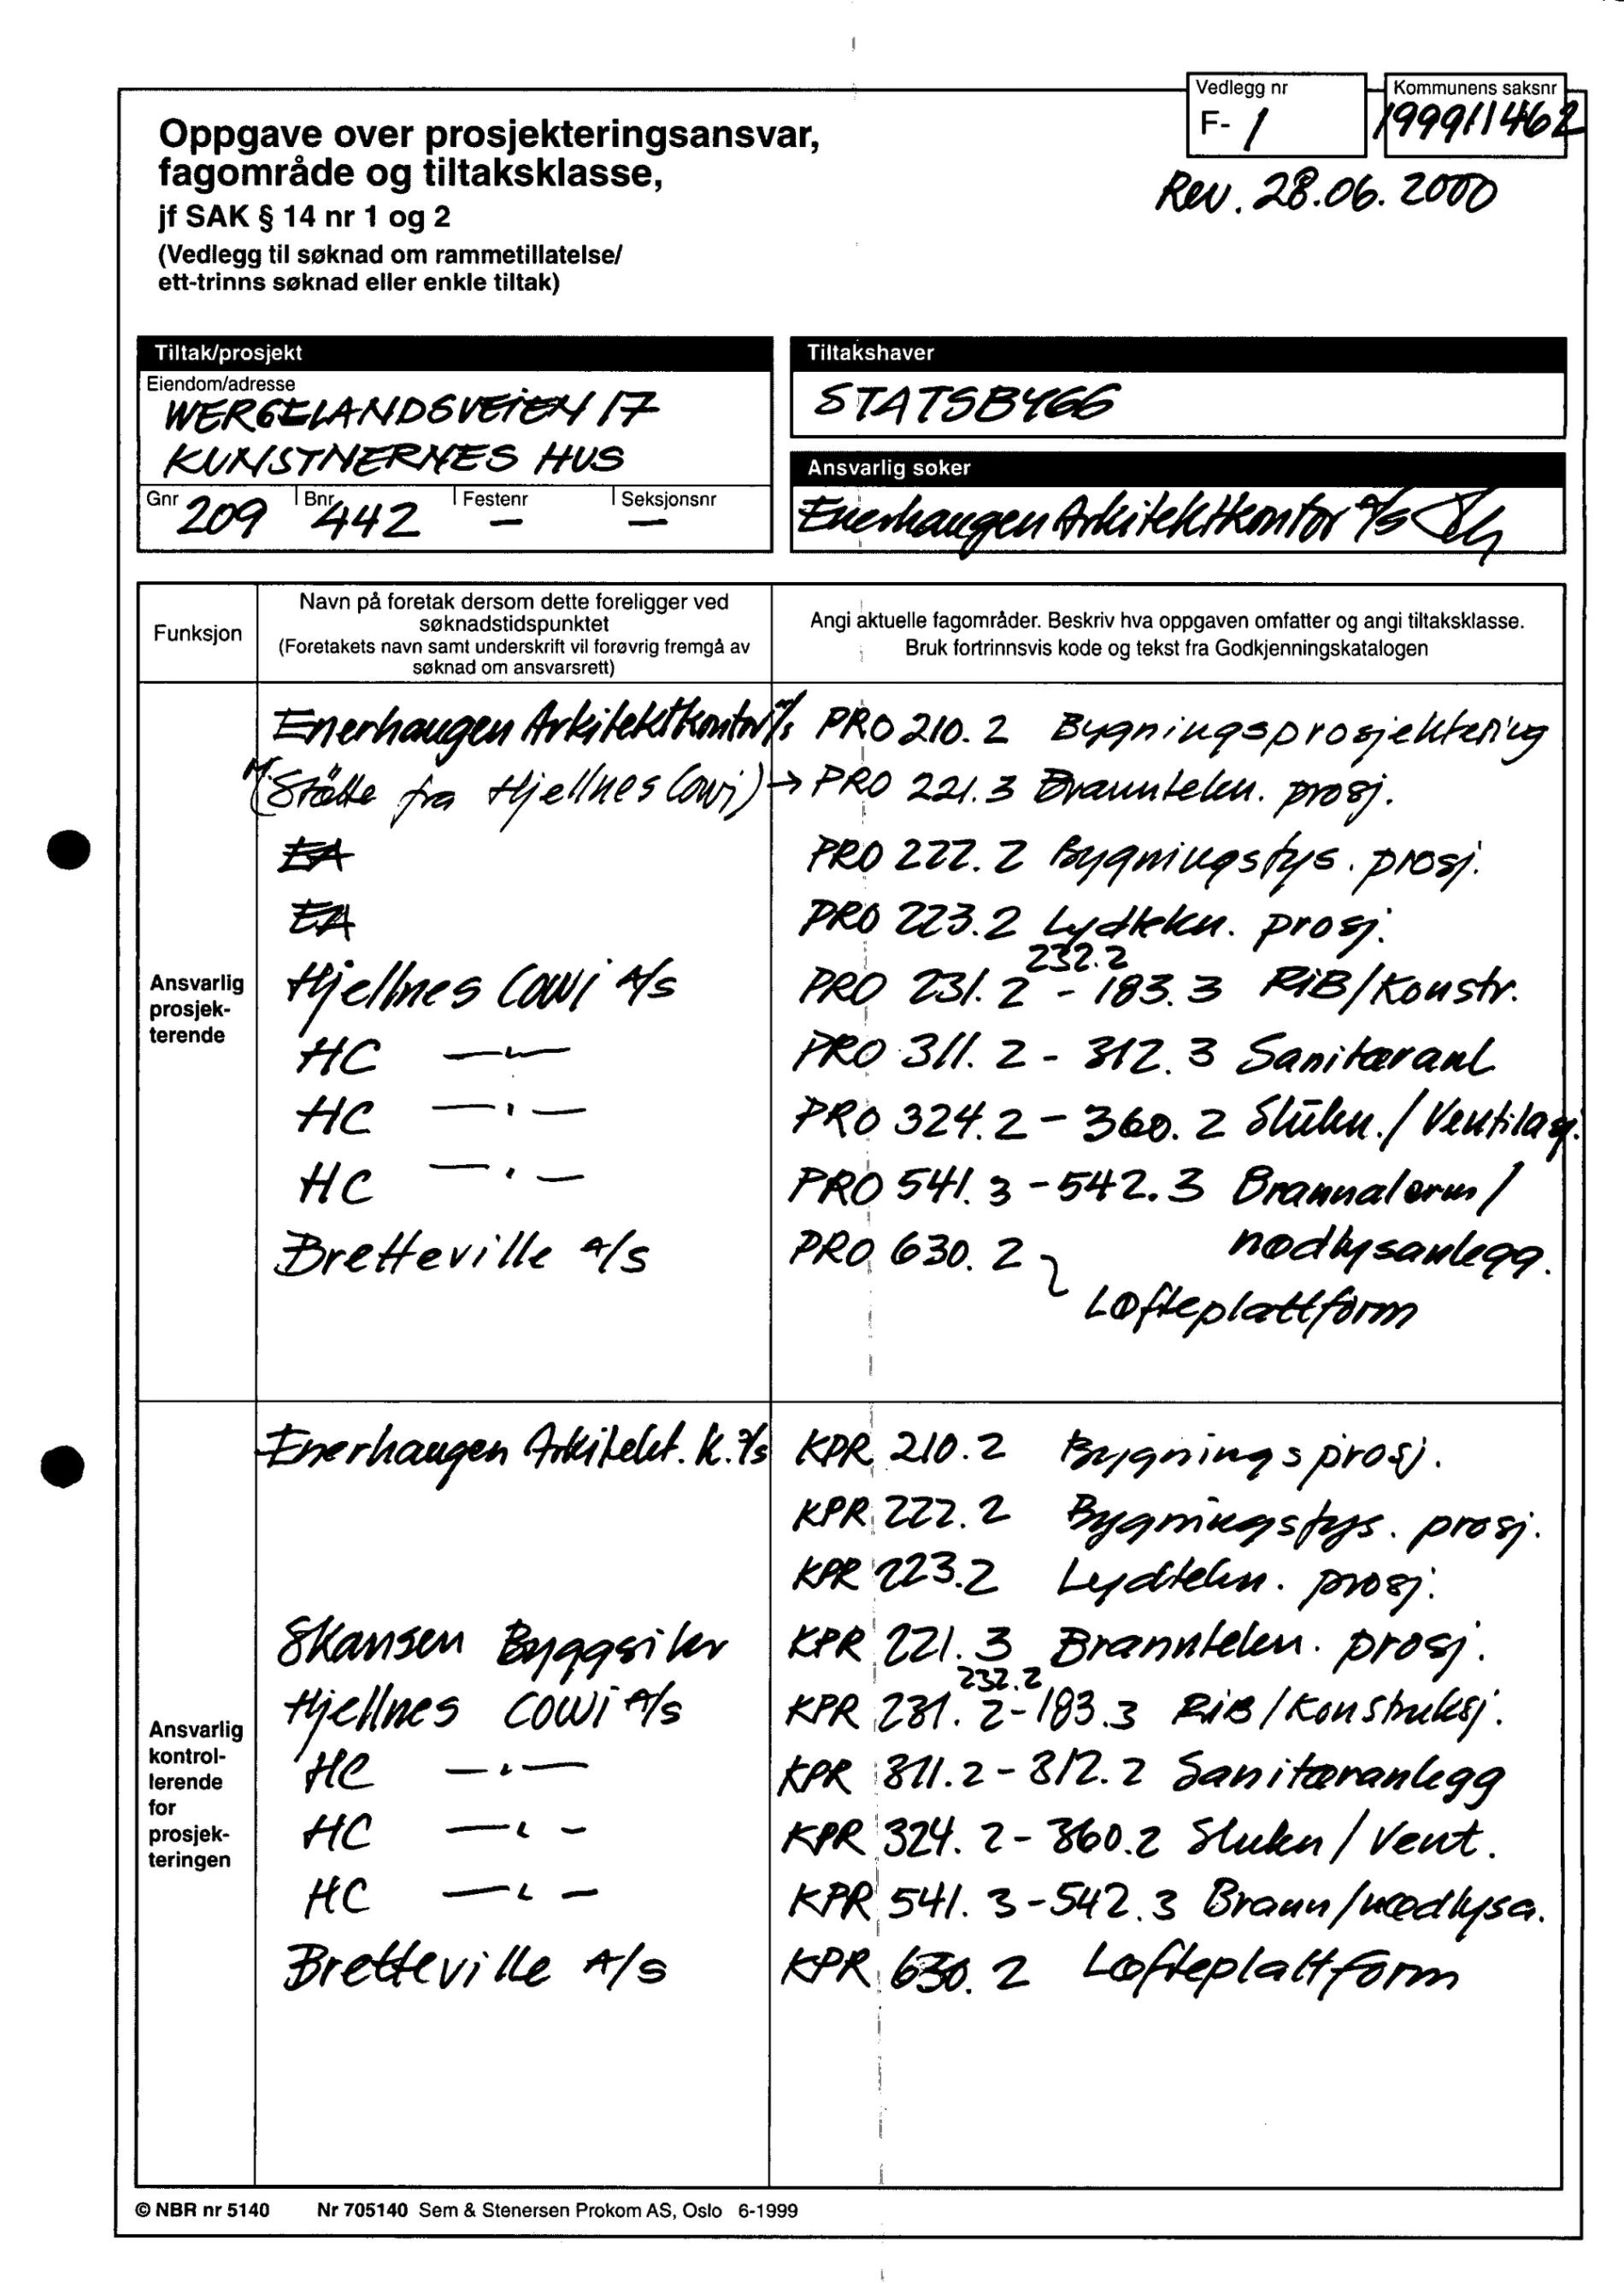 Vedlegg nr
F- 1
Kommunens saksnr
199911462
Rev. 28.06.2000
Oppgave over prosjekteringsansvar,
fagområde og tiltaksklasse,
jf SAK § 14 nr 1 og 2
(Vedlegg til søknad om rammetillatelse/
ett-trinns søknad eller enkle tiltak)
Tiltak/prosjekt
Eiendom/adresse
WERGELANDSVEIEN 17
KUNSTNERNES HUS
Gnr 209 Bnr 442 Festenr – Seksjonsnr –
Tiltakshaver
STATSBYGG
Ansvarlig søker
Enerhaugen Arkitektkontor A/S
Funksjon
Navn på foretak dersom dette foreligger ved
søknadstidspunktet
(Foretakets navn samt underskrift vil forøvrig fremgå av
søknad om ansvarsrett)
Angi aktuelle fagområder. Beskriv hva oppgaven omfatter og angi tiltaksklasse.
Bruk fortrinnsvis kode og tekst fra Godkjenningskatalogen
Ansvarlig
prosjek-
terende
Enerhaugen Arkitektkontor A/S PRO 210.2 Bygningsprosjektering
(Støtte fra Hjellnes Cowi) → PRO 221.3 Branntekn. prosj.
EA PRO 222.2 Bygningsfys. prosj.
EA PRO 223.2 Lydtekn. prosj.
232.2
Hjellnes COWI A/S PRO 231.2 - 183.3 RIB/Konstr.
HC —"— PRO 311.2 - 312.3 Sanitæranl
HC —"— PRO 324.2 - 360.2 Slukn./Ventilasj.
HC —"— PRO 541.3 - 542.3 Brannalarm/
nødlysanlegg.
Bretteville A/S PRO 630.2
Løfteplattform
Ansvarlig
kontrol-
lerende
for
prosjek-
teringen
Enerhaugen Arkitekt. k. A/S KPR 210.2 Bygningsprosj.
KPR 222.2 Bygningsfys. prosj.
KPR 223.2 Lydtekn. prosj.
Skansen Byggsikr KPR 221.3 Branntekn. prosj.
232.2
Hjellnes COWI A/S KPR 231.2-183.3 RIB/Konstruksj.
HC —"— KPR 311.2-312.2 Sanitæranlegg
HC —"— KPR 324.2-360.2 Slukn/Vent.
HC —"— KPR 541.3-542.3 Brann/nødlysa.
Bretteville A/S KPR 630.2 Løfteplattform
© NBR nr 5140 Nr 705140 Sem & Stenersen Prokom AS, Oslo 6-1999